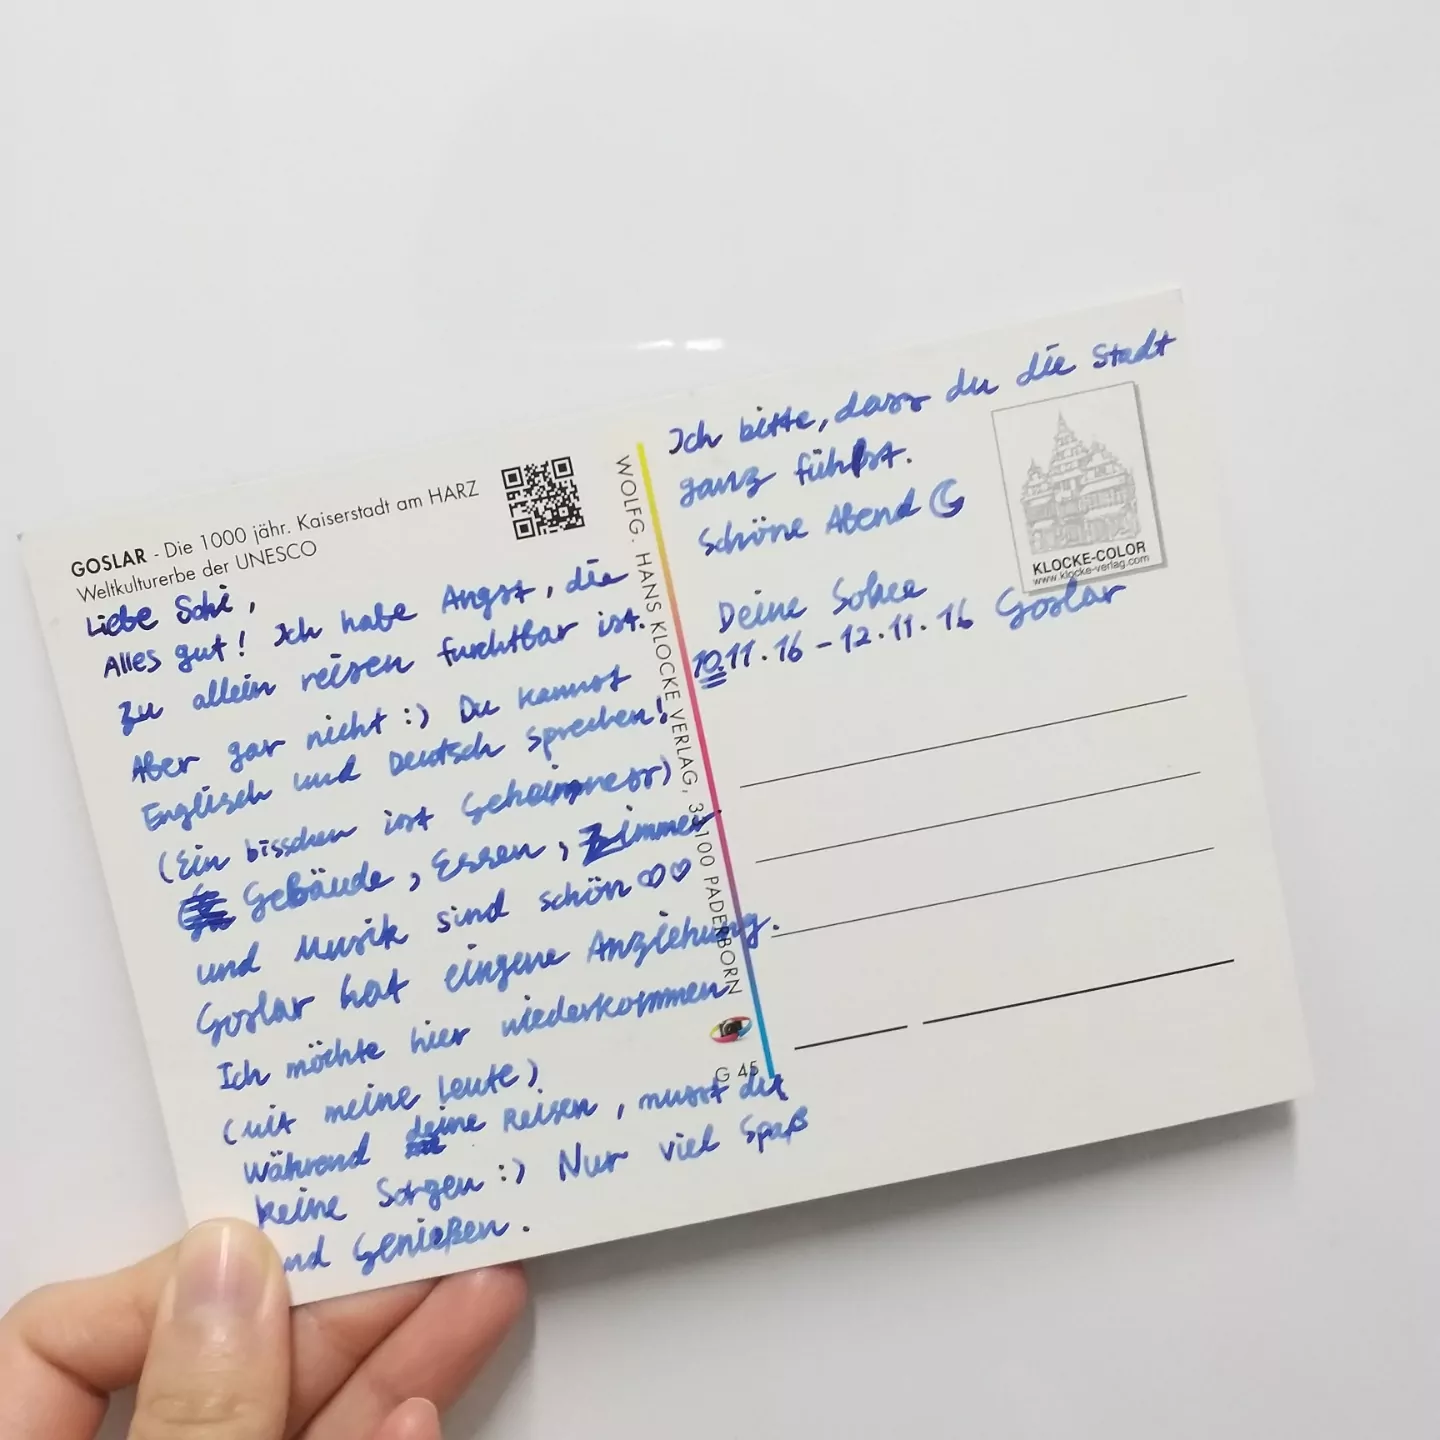 GOSLAR - Die 1000 jähr. Kaiserstadt am HARZ
Weltkulturerbe der UNESCO
Liebe Sohi,
Alles gut! Ich habe Angst, die
zu allein reisen furchtbar ist.
Aber gar nicht :) Du kannst
Englisch und Deutsch sprechen!
(Ein bisschen ist Geheimness)
Gebäude, Essen, Zimmer
und Musik sind schön ♡♡
Goslar hat eingene Anziehung.
Ich möchte hier wiederkommen
(mit meine Leute)
Während deine Reisen, musst du
keine Sorgen :) Nur viel Spaß
und Genießen.
WOLFG. HANS KLOCKE VERLAG, 33100 PADERBORN
G 45
Ich bitte, dass du die Stadt
ganz fühlst.
Schöne Abend
Deine
10.11.16 - 12.11.16 Goslar
KLOCKE-COLOR
www.klocke-verlag.com